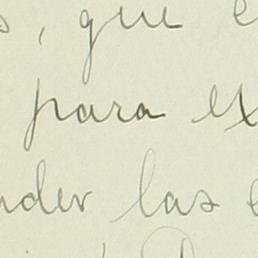 , que
para ex
nder las